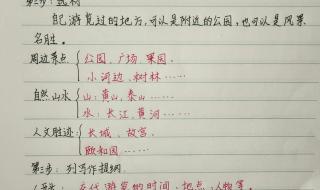 第二步：选材
自己游览过的地方，可以是附近的公园，也可以是风景
名胜。
周边景点 公园、广场、果园、
小河边、树林……
自然山水 山：黄山、泰山……
水：长江、黄河……
人文胜迹 长城、故宫、
颐和园……
第三步：列写作提纲
交代游览的时间、地点、人物等。